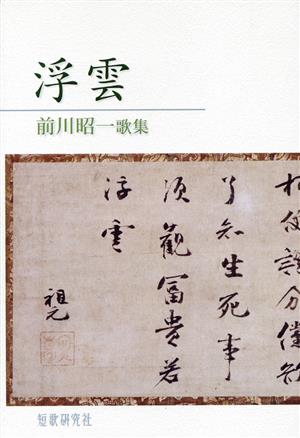 浮雲
前川昭一歌集
了知生死事
須觀冨貴若
浮雲
祖元
短歌研究社